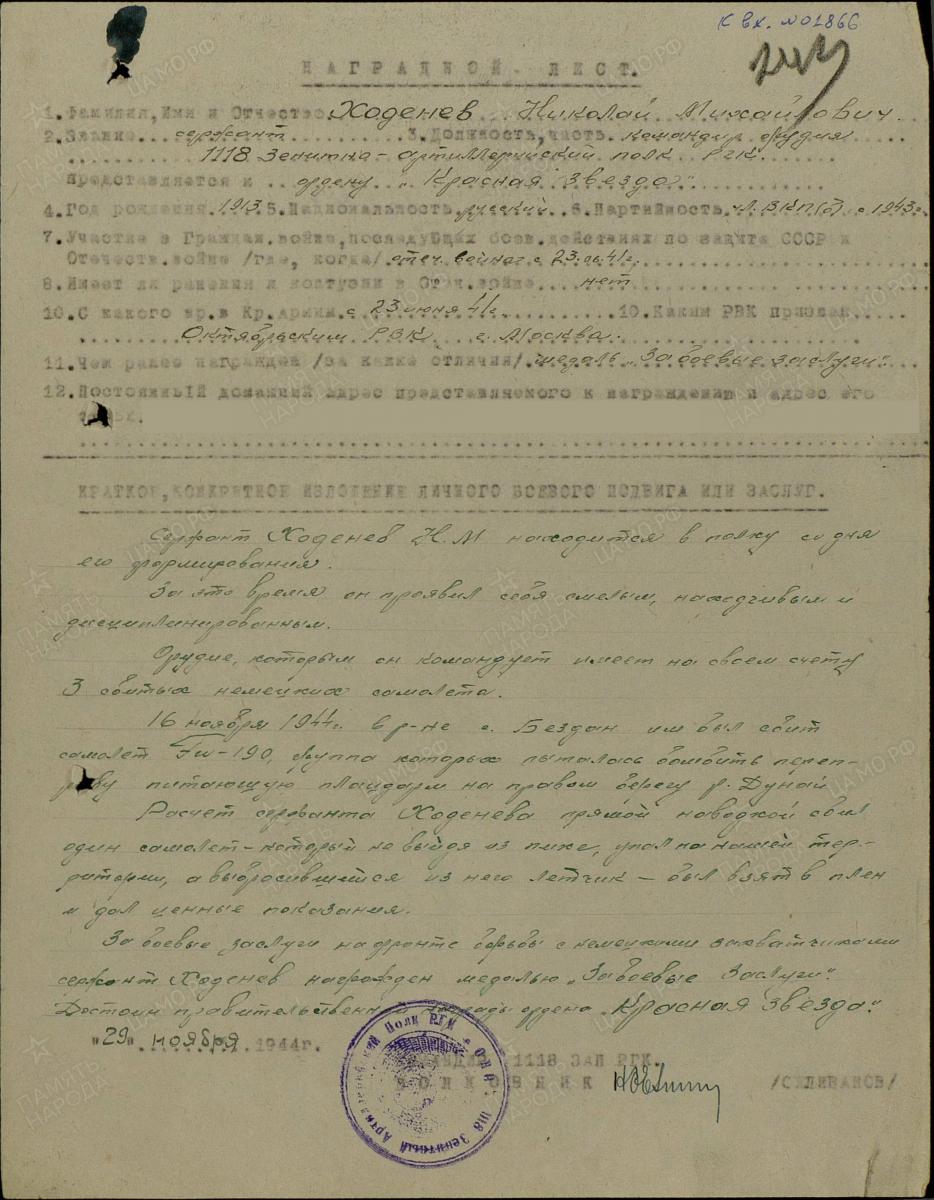 к вх. № 01866
НАГРАДНОЙ ЛИСТ.
1. Фамилия, Имя и Отчество Ходенев Николай Михайлович.
2. Звание сержант 3. Должность, часть командир орудия
1118 Зенитно-артиллерийский полк РГК.
представляется к ордену „Красная Звезда"
4. Год рождения 1913 5. Национальность русский 6. Партийность чл. ВКП(б) с 1943г
7. Участие в Граждан. войне, последующих боев. действиях по защите СССР и
Отечеств. войне /где, когда/ отеч. война с 23.06.41г.
8. Имеет ли ранения и контузии в Отеч. войне нет
10. С какого вр. в Кр. Армии с 23 июня 41г. 10. Каким РВК призван
Октябрьским РВК г. Москва.
11. Чем ранее награжден /за какие отличия/ медаль „За боевые заслуги".
12. Постоянный домашний адрес представляемого к награждению и адрес его
КРАТКОЕ, КОНКРЕТНОЕ ИЗЛОЖЕНИЕ ЛИЧНОГО БОЕВОГО ПОДВИГА ИЛИ ЗАСЛУГ.
Сержант Ходенев Н.М находится в полку со дня
его формирования.
За это время он проявил себя смелым, находчивым и
дисциплинированным.
Орудие, которым он командует имеет на своем счету
3 сбитых немецких самолета.
16 ноября 1944г. в р-не с. Бездан им был сбит
самолет Fw-190, группа которых пыталась бомбить переп-
раву питающую плацдарм на правом берегу р. Дунай
Расчет сержанта Ходенева прямой наводкой сбил
один самолет - который не выйдя из пике, упал на нашей тер-
ритории, а выбросившийся из него летчик - был взят в плен
и дал ценные показания.
За боевые заслуги на фронте борьбы с немецкими захватчиками
сержант Ходенев награжден медалью „За боевые заслуги".
Достоин правительственной награды ордена „Красная Звезда".
"29" ноября 1944г.
1118 ЗАП РГК.
ПОЛКОВНИК /СЕЛИВАНОВ/
1118 Зенитный Артиллерийский Полк РГК